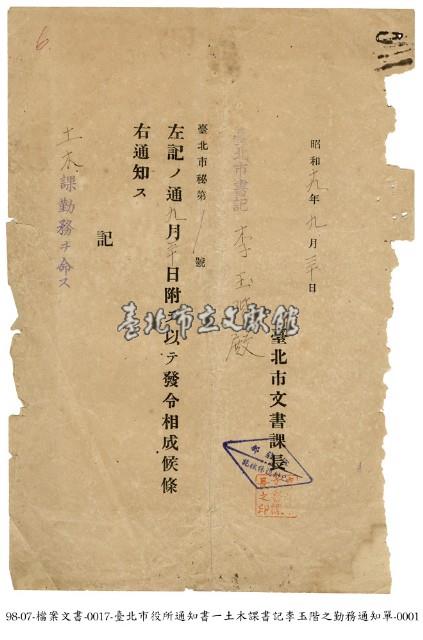 昭和九年九月三十日
臺北市文書課長
臺北市書記 李玉階殿
臺北市秘第 號
左記ノ通九月三十日附ヲ以テ發令相成候條
右通知ス
記
土木課勤務ヲ命ス
臺北市立文獻館
98-07-檔案文書-0017-臺北市役所通知書—土木課書記李玉階之勤務通知單-0001